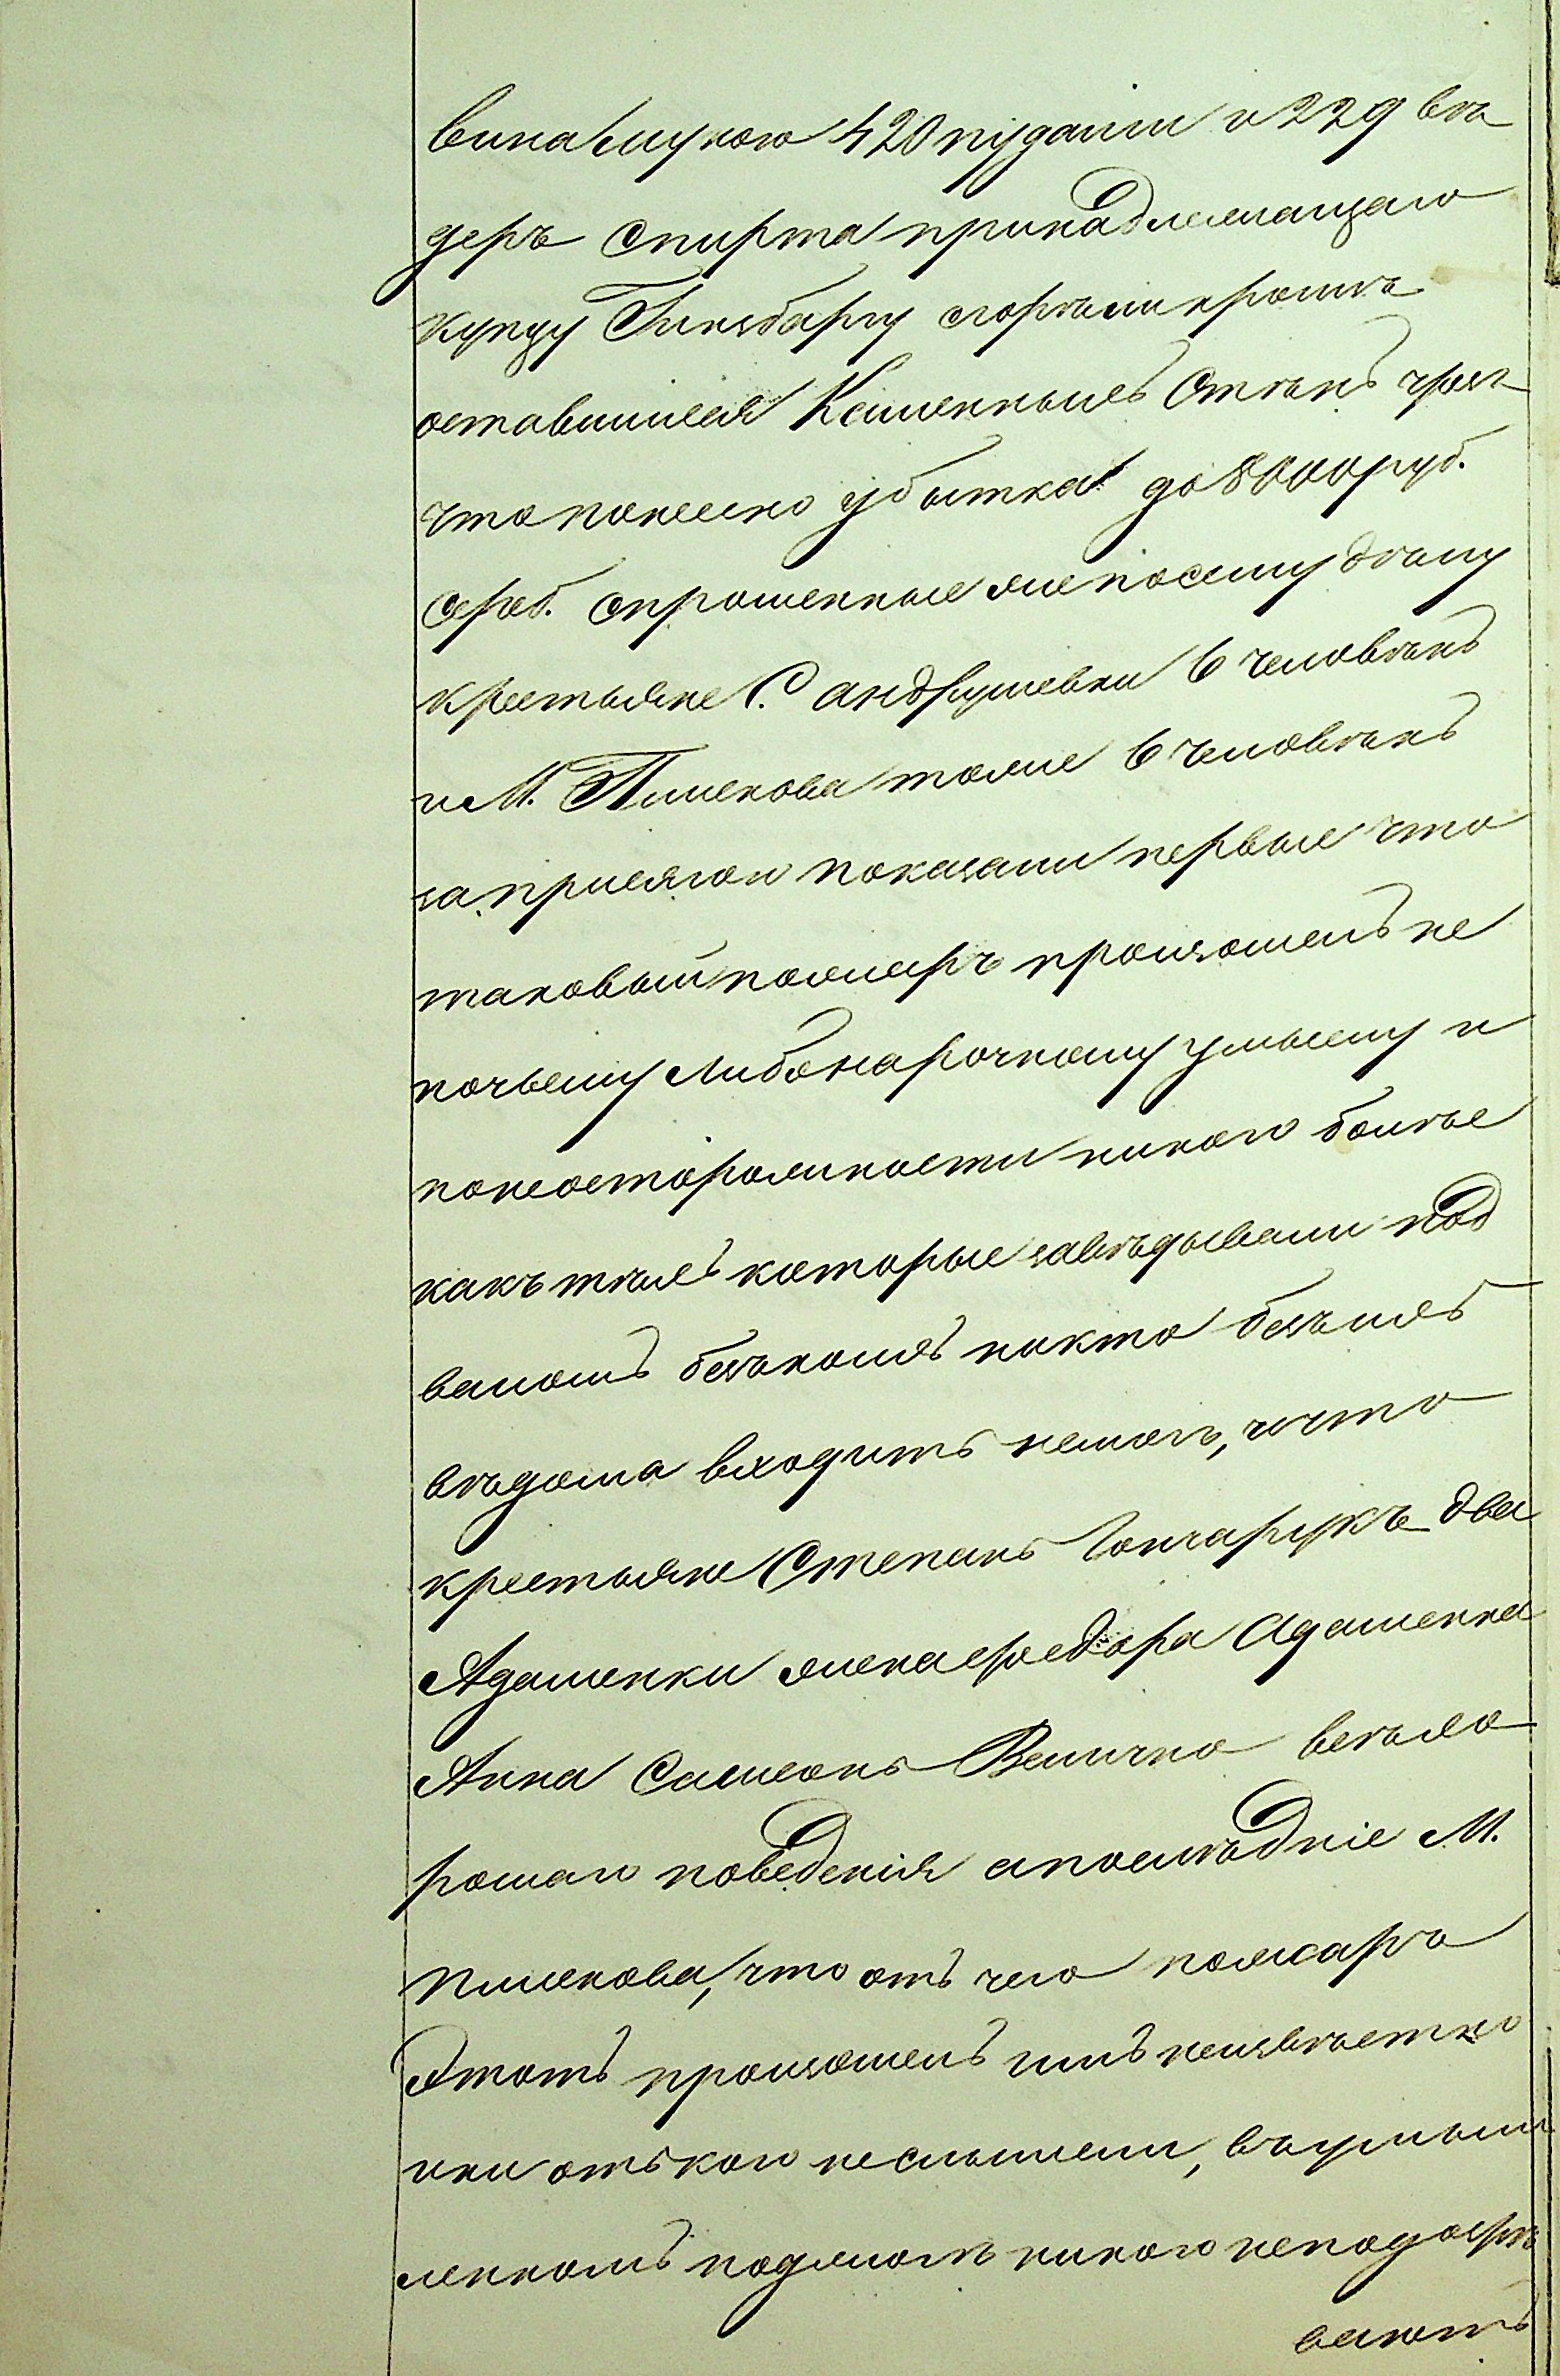 вина мукою 420 пудами и 229 вѣ
деръ спирта принадлежащаго
купцу Гинзбаргу сгорѣли кромѣ
оставшихся Каменныхъ Стѣнъ чрез
что понесено убытка до 8000 руб.
сереб. спрошенные же посему дѣлу
крестьяне С. андрушевки 6 человѣкъ
и М. Плискова тоже 6 человѣкъ
заприсягои показали первые что
таковый пожаръ произошелъ не
почьему либо нарочному умыслу и
понеосторожности никого болѣе
какъ тѣхъ которые завѣдывали под
валомъ безъкоихъ никто безъихъ
вѣдома входить немогъ, и что
крестьяне Степанъ Гончарукъ два
Адаменки жена Федора Адаменка
Анна Самсонъ Величко всѣ хо
рошаго поведенія апослѣдніе М.
Плискова, что отъ чего пожаръ
Этотъ произошелъ имъ неизвѣстно
ини отъкого неслышели, въумыш
ленномъ поджогѣ никого неподозрѣ
ваютъ